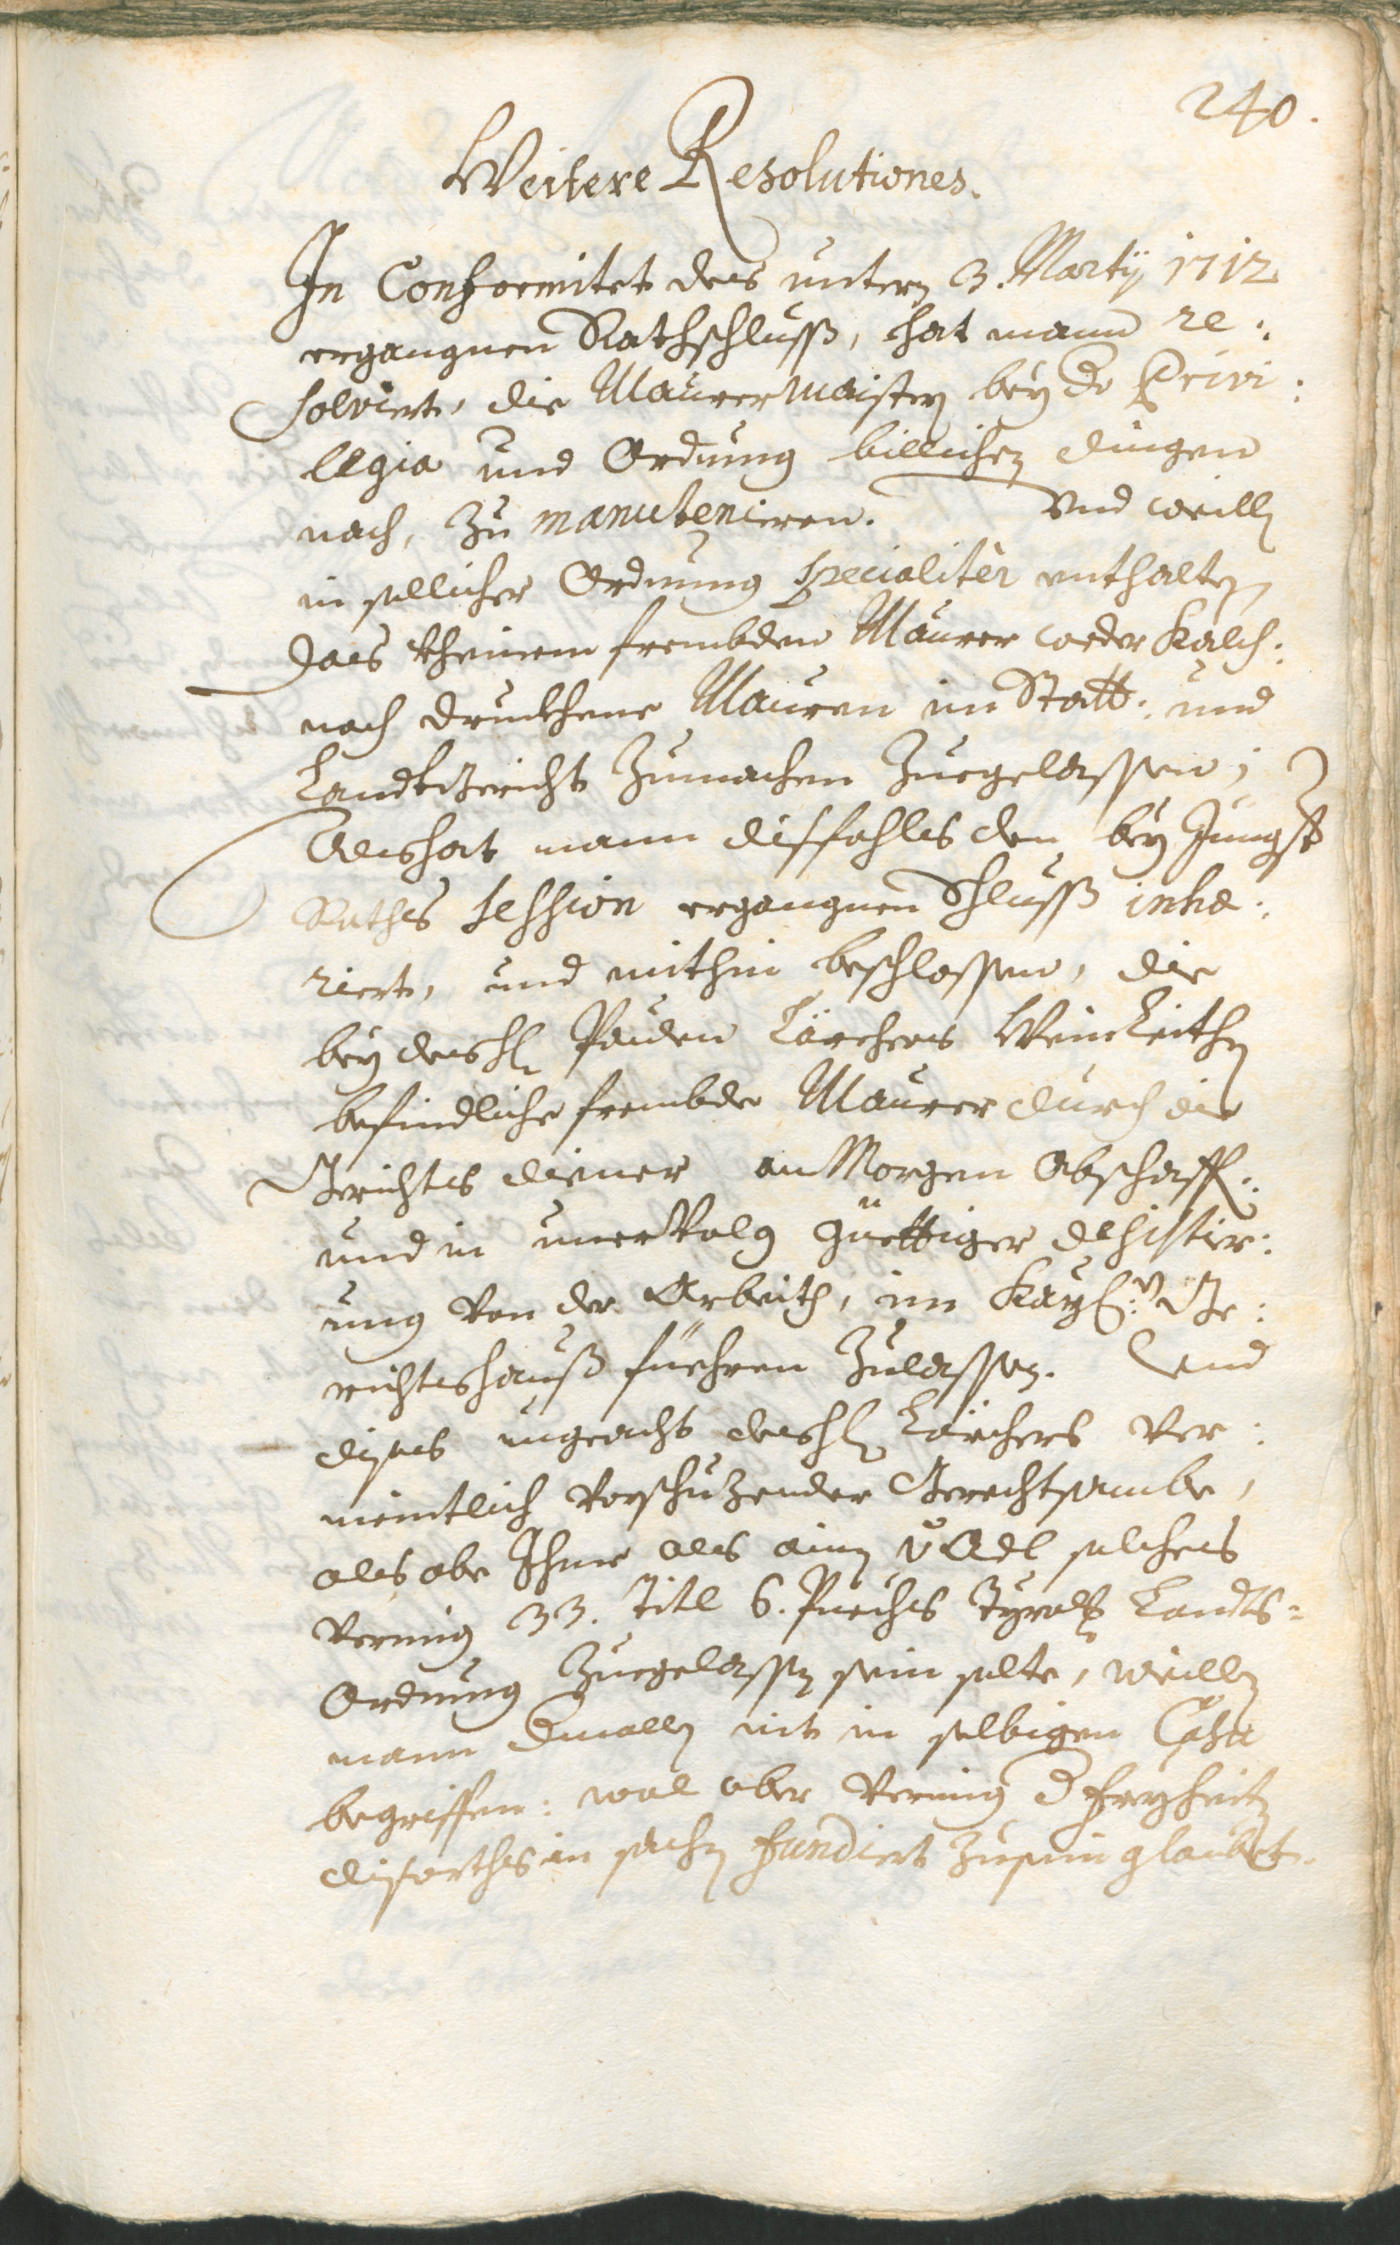 240.
Weitere Resolutiones.
In Conformitet des untern 3. Martij 1712
ergangnen Rathschluss, hat mann re:
solviert, die Maurermaister bey de Privi:
legia und Ordnung billichen dingen
nach, zu manutenieren. Und weill
in sollicher Ordnung specialiter enthalten,
das kheinem frembden Maurer weder Kalch:
noch druckhene Mauren im Statt: und
Landtgericht zumachen zuegelassen;
Als hat mann dissfahls den bey Jungst
Raths session ergangnen Schluss inhæ:
riert, und mithin beschlossen, die
bey des H. Paulen Lärchers Weinleithen
befindliche frembde Maurer durch die
Gerichts diener an Morgen Abschaff:
und in unervolg güettiger desistier:
ung von der Arbeith, im Kayl: Ge:
richtshauß füehren zulassen. Und
dises ungeacht des H. Lärchers ver:
meintlich vorschuzender Gerechtsambe,
als obe Ihme als ainen v Adl solches
vermig 33. Titl 6. Puechs Tyrolr Landts=
Ordnung zuegelassen sein solte, weillen
mann dermallen nit in selbigen Casu
begriffen: wol aber vermig d freyheiten
diserths in sachen fundiert zusein glaubet.